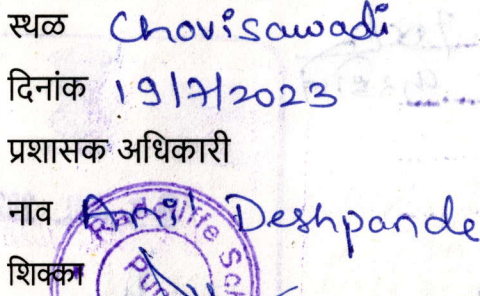 स्थळ Chovisawadi
दिनांक 19/7/2023
प्रशासक अधिकारी
नाव Anil Deshpande
शिक्का